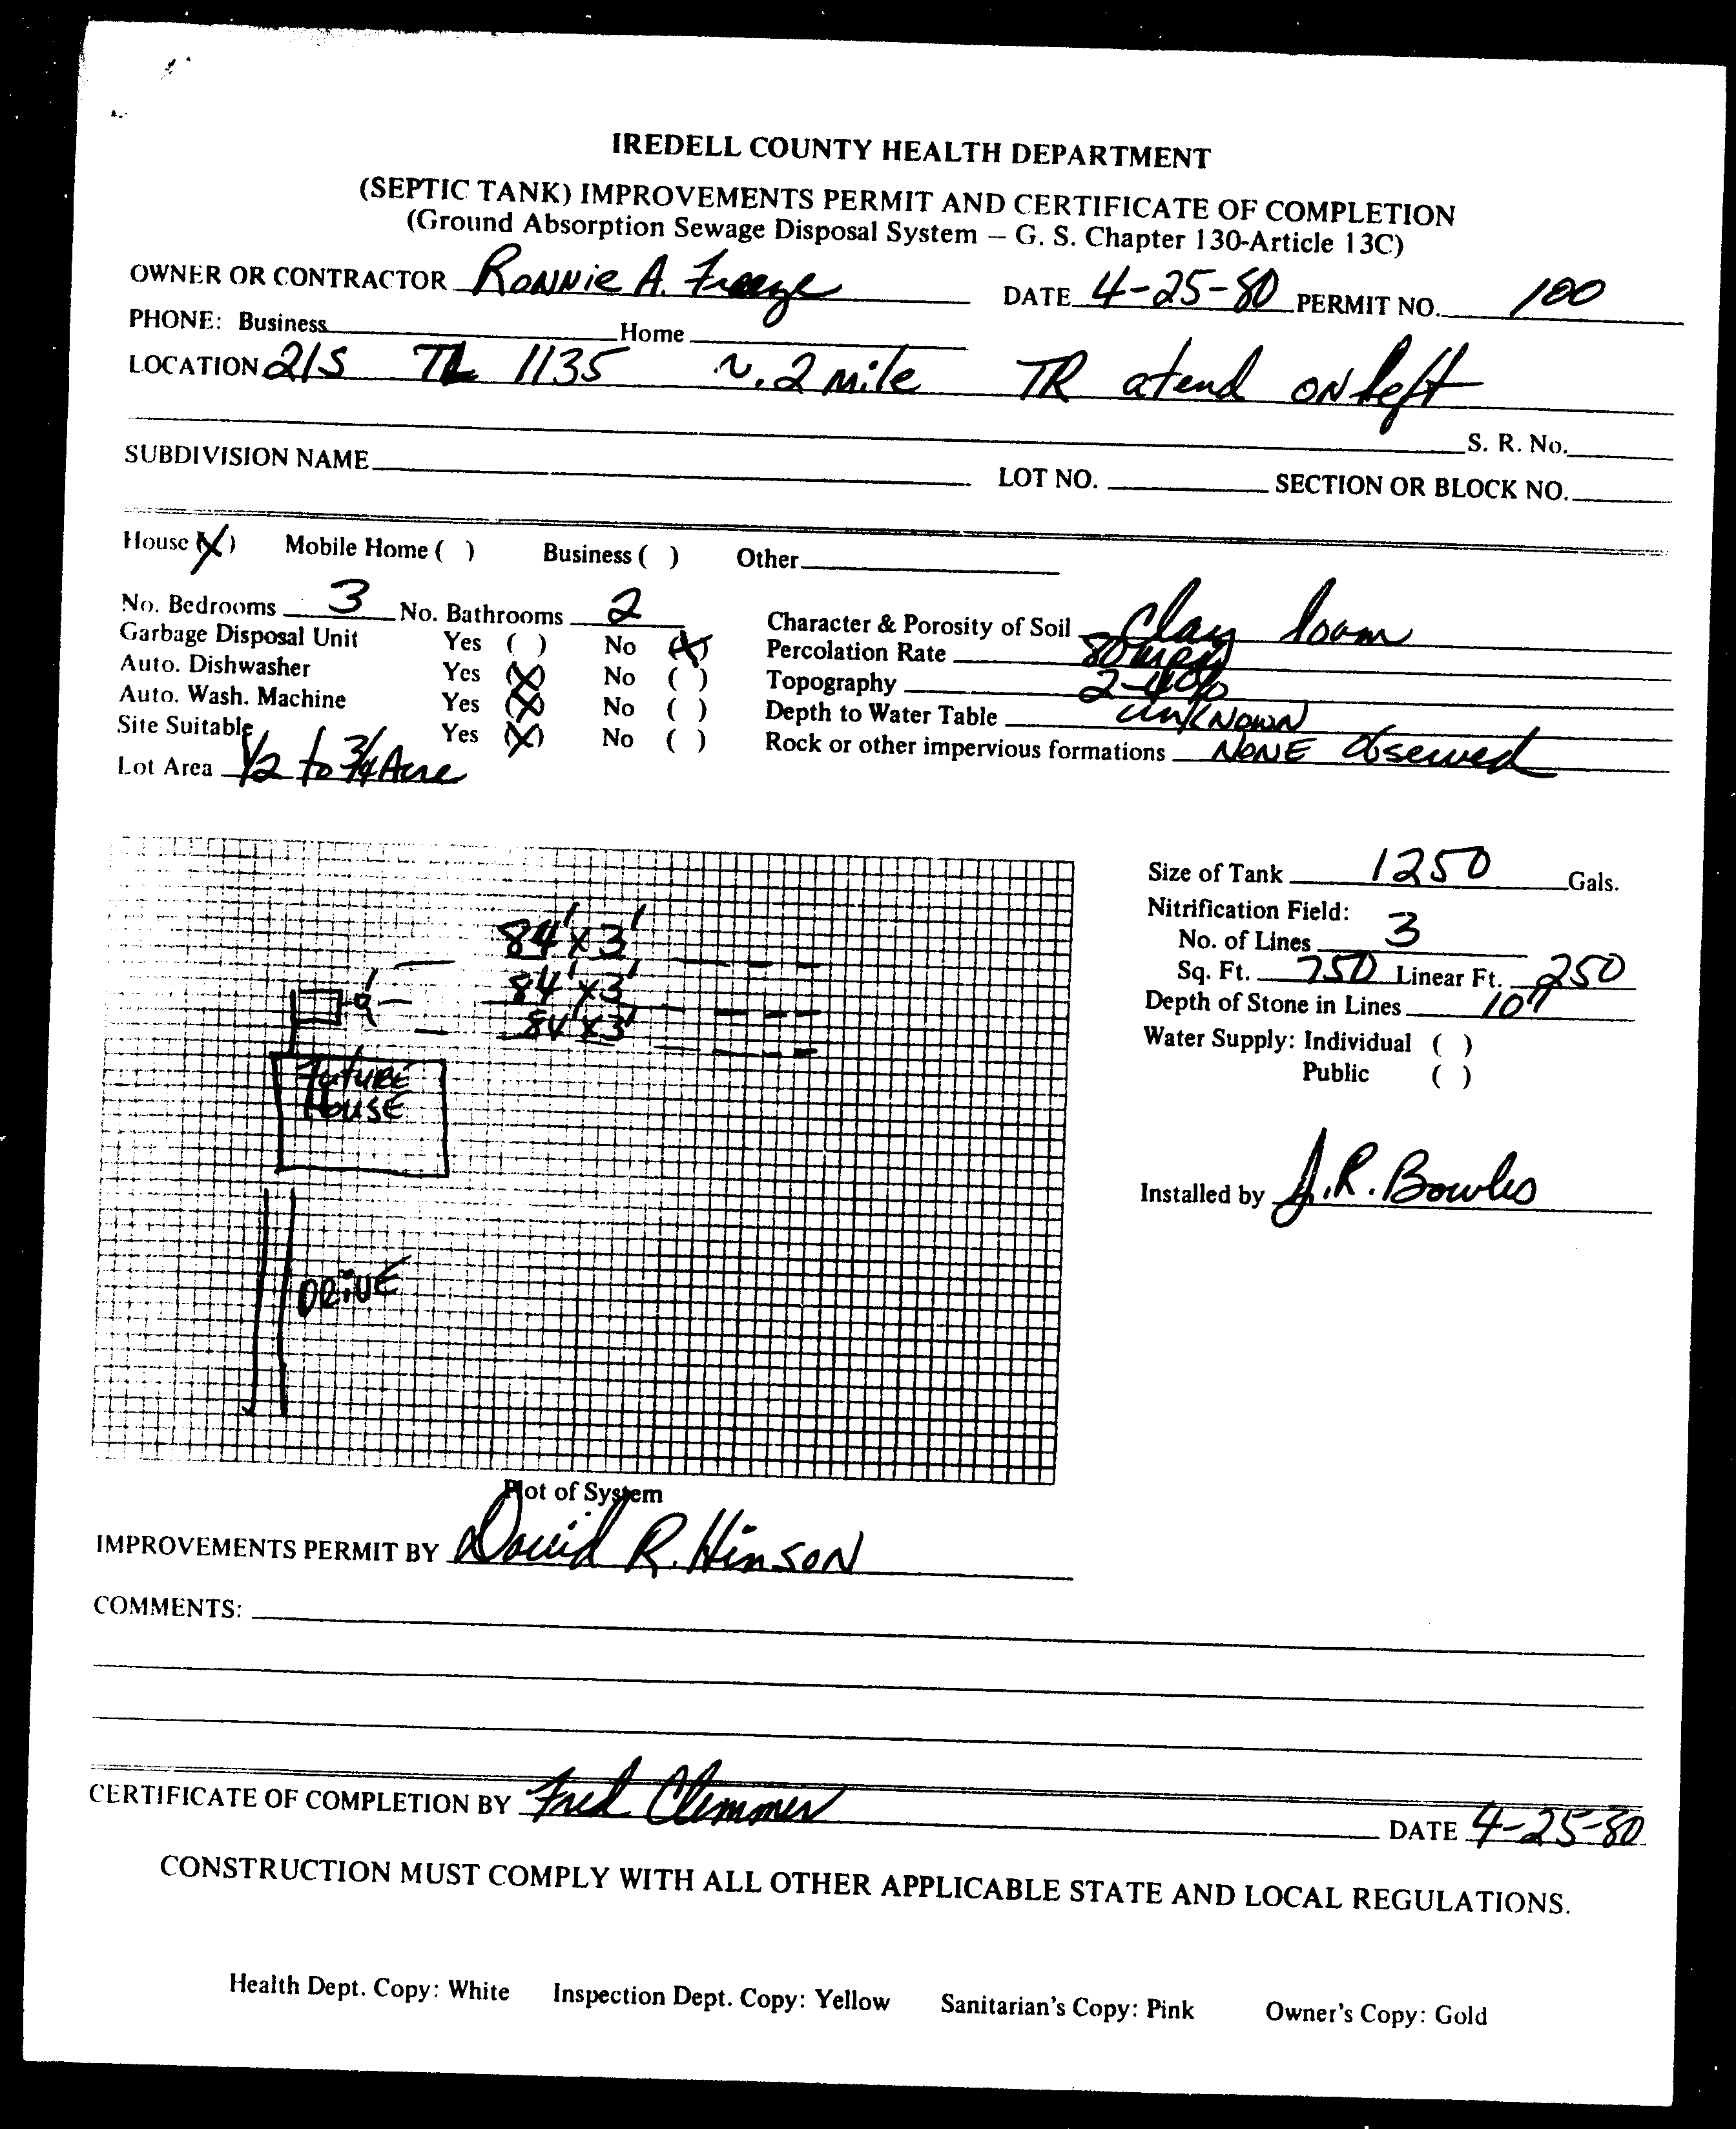 IREDELL COUNTY HEALTH DEPARTMENT
(SEPTIC TANK) IMPROVEMENTS PERMIT AND CERTIFICATE OF COMPLETION
(Ground Absorption Sewage Disposal System – G. S. Chapter 130-Article 13C)
OWNER OR CONTRACTOR RONNIE A. Freeze DATE 4-25-80 PERMIT NO. 100
PHONE: Business Home
LOCATION 21S TL 1135 ~.2 mile TR at end ON left
S. R. No.
SUBDIVISION NAME LOT NO. SECTION OR BLOCK NO.
House (X) Mobile Home ( ) Business ( ) Other
No. Bedrooms 3 No. Bathrooms 2 Character & Porosity of Soil Clay loam
Garbage Disposal Unit Yes ( ) No (X) Percolation Rate 80
Auto. Dishwasher Yes (X) No ( ) Topography 2-4%
Auto. Wash. Machine Yes (X) No ( ) Depth to Water Table UNKNOWN
Site Suitable Yes (X) No ( ) Rock or other impervious formations NONE Observed
Lot Area 1/2 to 3/4 Acre
84' x 3'
84' x 3'
84' x 3'
FUTURE
HOUSE
DRIVE
Size of Tank 1250 Gals.
Nitrification Field:
No. of Lines 3
Sq. Ft. 750 Linear Ft. 250
Depth of Stone in Lines 10"
Water Supply: Individual ( )
Public ( )
Installed by J.R. Bowles
Plot of System
IMPROVEMENTS PERMIT BY David R. Hinson
COMMENTS:
CERTIFICATE OF COMPLETION BY Fred Clemmer DATE 4-25-80
CONSTRUCTION MUST COMPLY WITH ALL OTHER APPLICABLE STATE AND LOCAL REGULATIONS.
Health Dept. Copy: White Inspection Dept. Copy: Yellow Sanitarian's Copy: Pink Owner's Copy: Gold